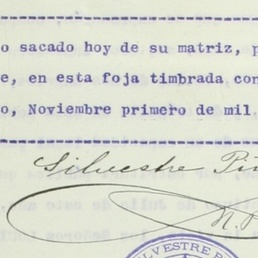 o sacado hoy de su matriz, p
e, en esta foja timbrada con
o, Noviembre primero de mil
Silvestre
N. P.
LVESTRE P